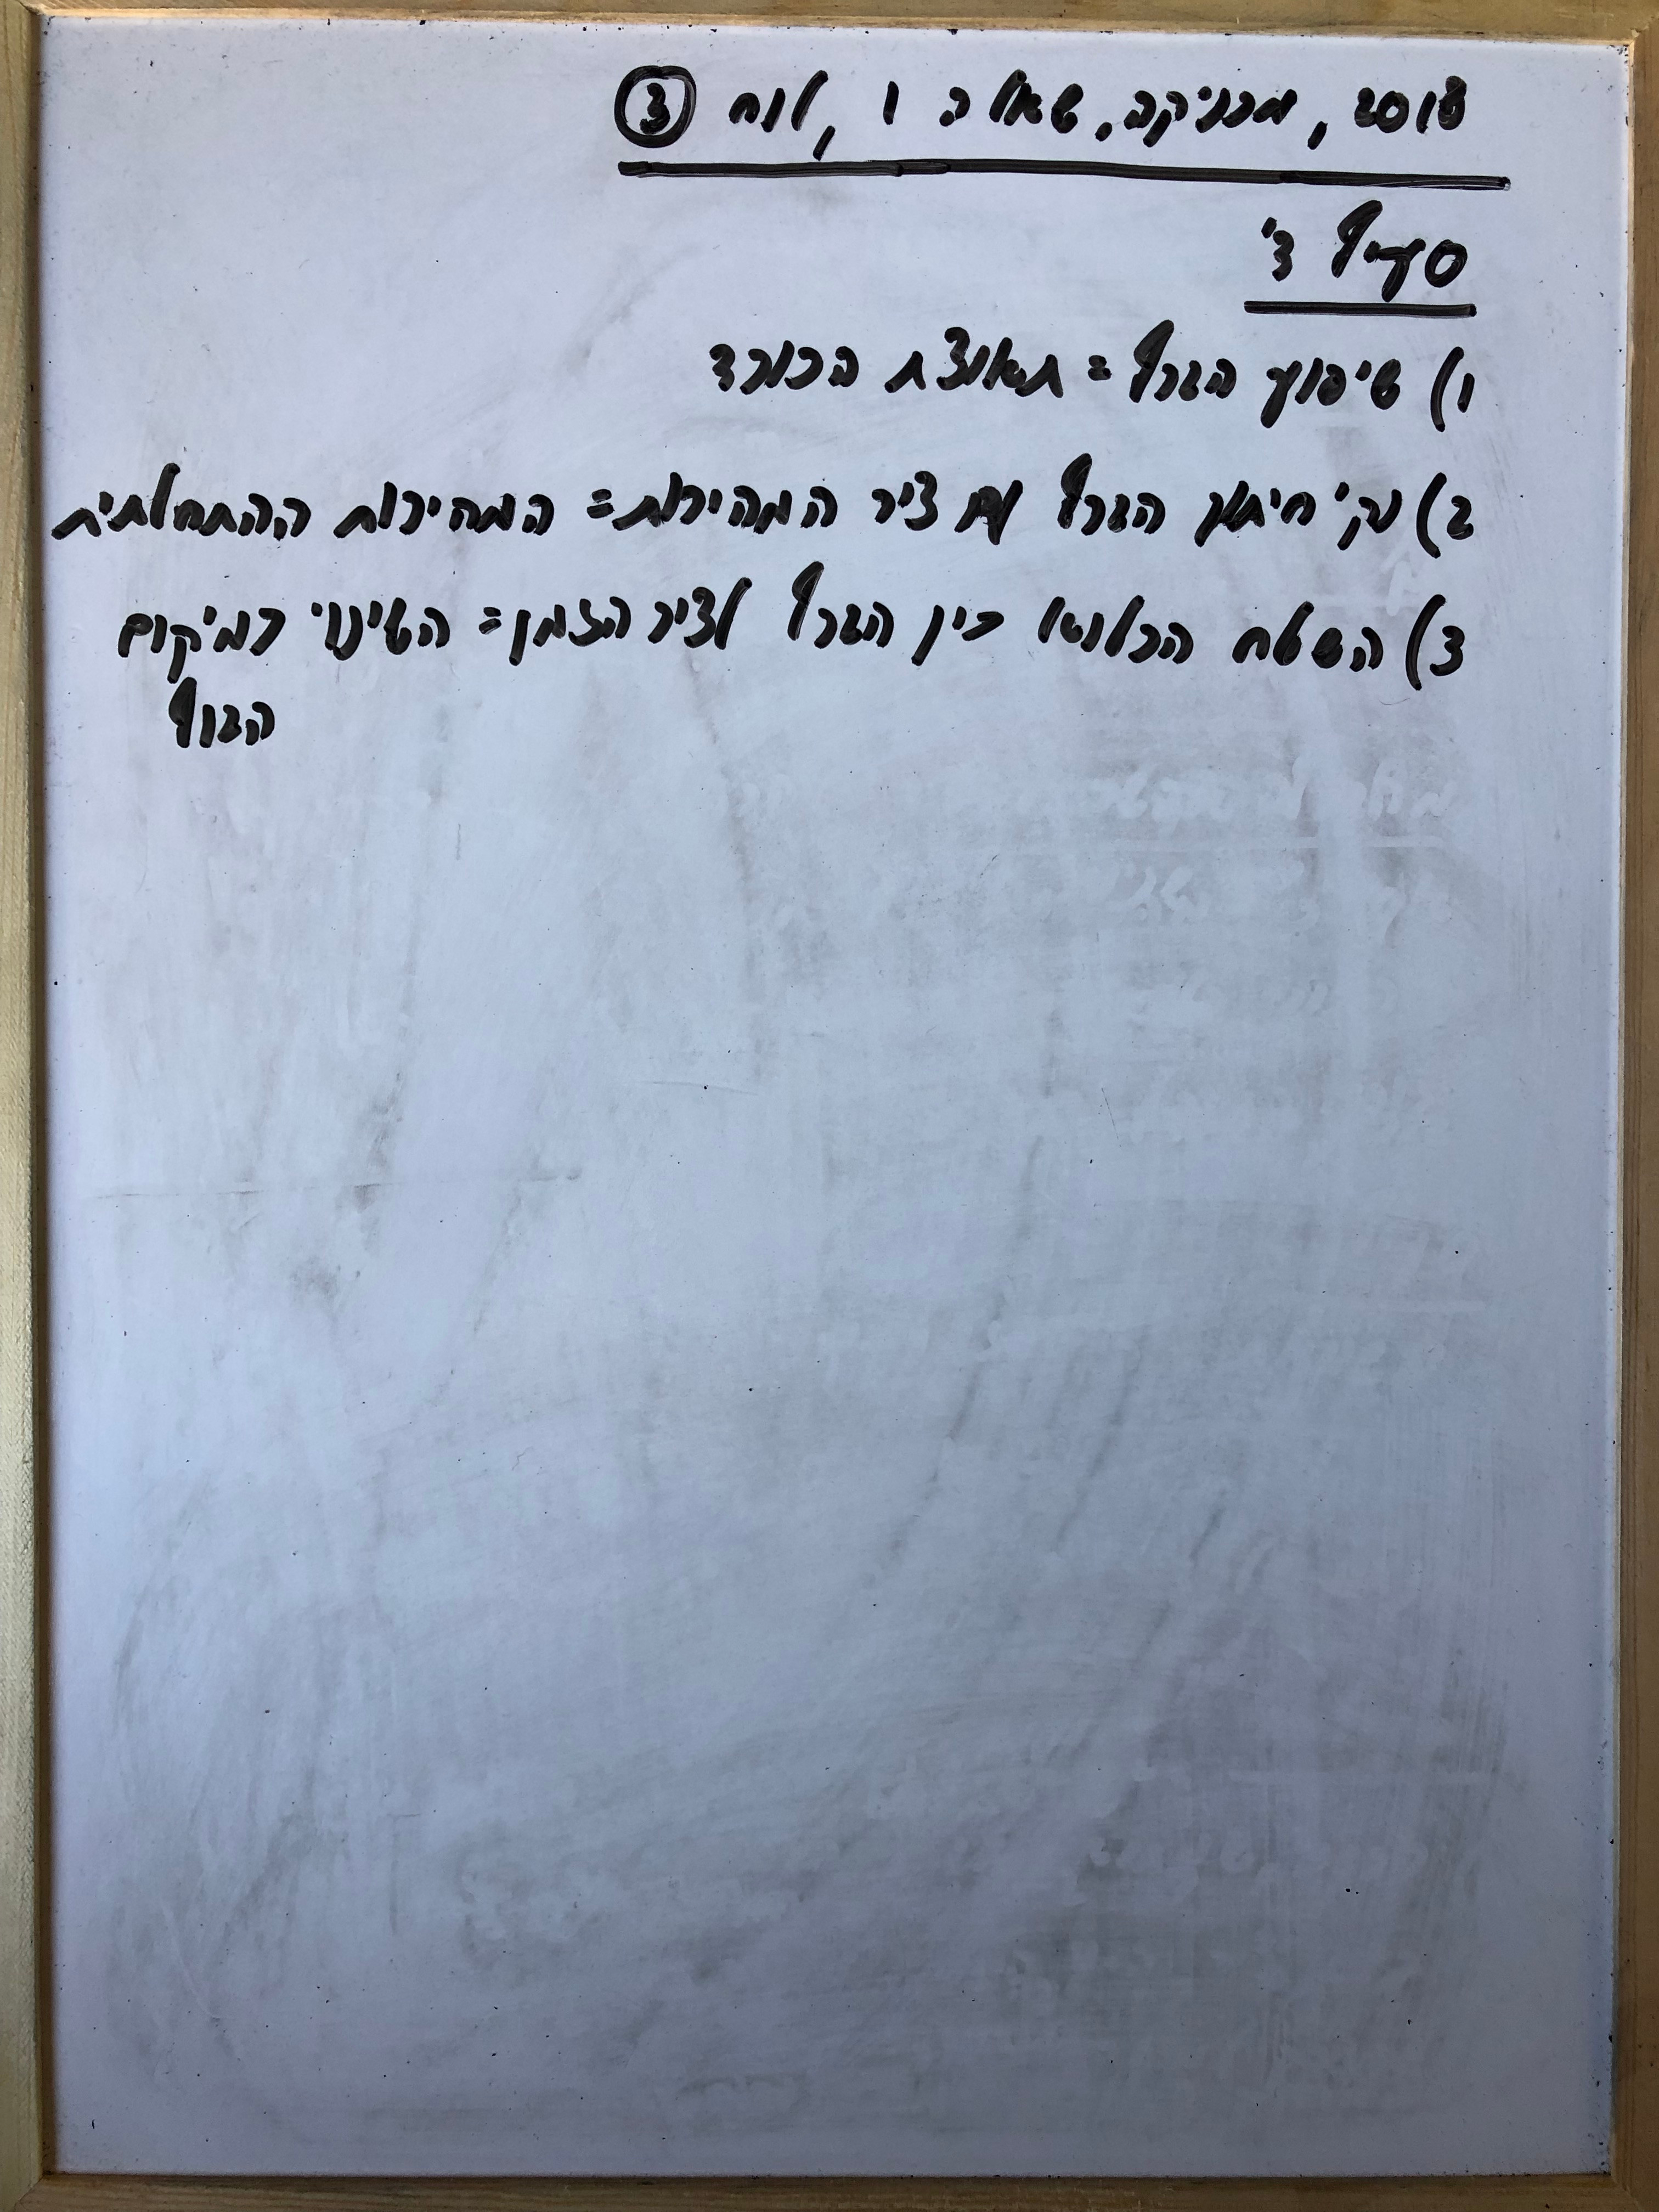 2018, מכניקה, שאלה 1, לוח 3
סעיף ד'
1) שיפוע הגרף = תאוצת הכובד
2) נק' חיתוך הגרף עם ציר המהירות = המהירות ההתחלתית
3) השטח הכלוא בין הגרף לציר הזמן = השינוי במיקום
הגוף